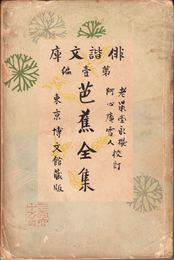 俳諧文庫
第壹編
老鼠堂永機
阿心庵雪人 校訂
芭蕉全集
東京 博文館藏版